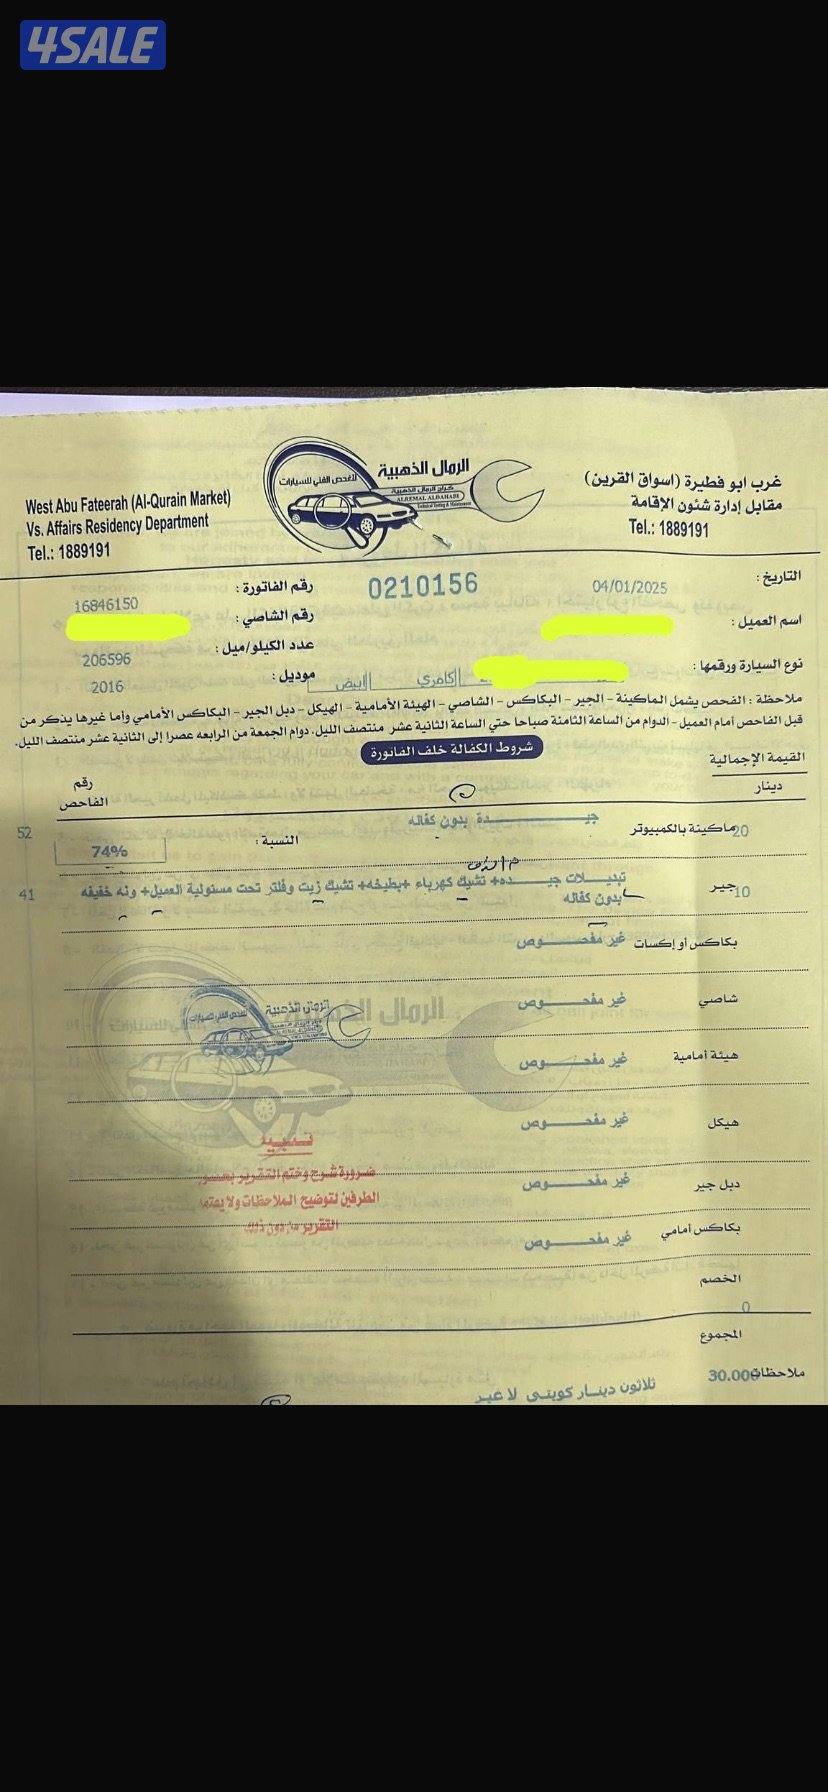 4SALE
الرمال الذهبية
للفحص الفني للسيارات
كراج الرمال الذهبية
ALREMAL ALDAHABI
Technical Testing & Maintenance
غرب ابو فطيرة (اسواق القرين)
مقابل إدارة شئون الإقامة
Tel.: 1889191
West Abu Fateerah (Al-Qurain Market)
Vs. Affairs Residency Department
Tel.: 1889191
التاريخ : 04/01/2025
0210156
رقم الفاتورة : 16846150
اسم العميل :
رقم الشاصي :
عدد الكيلو/ميل : 206596
نوع السيارة ورقمها : كامري أبيض
موديل : 2016
ملاحظة : الفحص يشمل الماكينة - الجير - البكاكس - الشاصي - الهيئة الأمامية - الهيكل - دبل الجير - البكاكس الأمامي وأما غيرها يذكر من
قبل الفاحص أمام العميل - الدوام من الساعة الثامنة صباحا حتي الساعة الثانية عشر منتصف الليل. دوام الجمعة من الرابعه عصرا إلى الثانية عشر منتصف الليل.
شروط الكفالة خلف الفاتورة
القيمة الإجمالية
دينار
رقم
الفاحص
20 ماكينة بالكمبيوتر جيـــــــدة بدون كفاله النسبة : 74% 52
10 جير تبديـــلات جيـــده+ تشيك كهرباء +بطيخه+ تشيك زيت وفلتر تحت مسئولية العميل+ ونه خفيفه 41
بدون كفاله
بكاكس أو إكسات غير مفحـــــوص
شاصي غير مفحـــــوص
هيئة أمامية غير مفحـــــوص
هيكل غير مفحـــــوص
دبل جير غير مفحـــــوص
بكاكس أمامي غير مفحـــــوص
الرمال الذهبية
تنبيه
ضرورة شرح وختم التقرير بحضور
الطرفين لتوضيح الملاحظات ولا يعتمد
التقرير من دون ذلك
الخصم
0
المجموع
30.000
ملاحظات
ثلاثون دينار كويتى لا غير